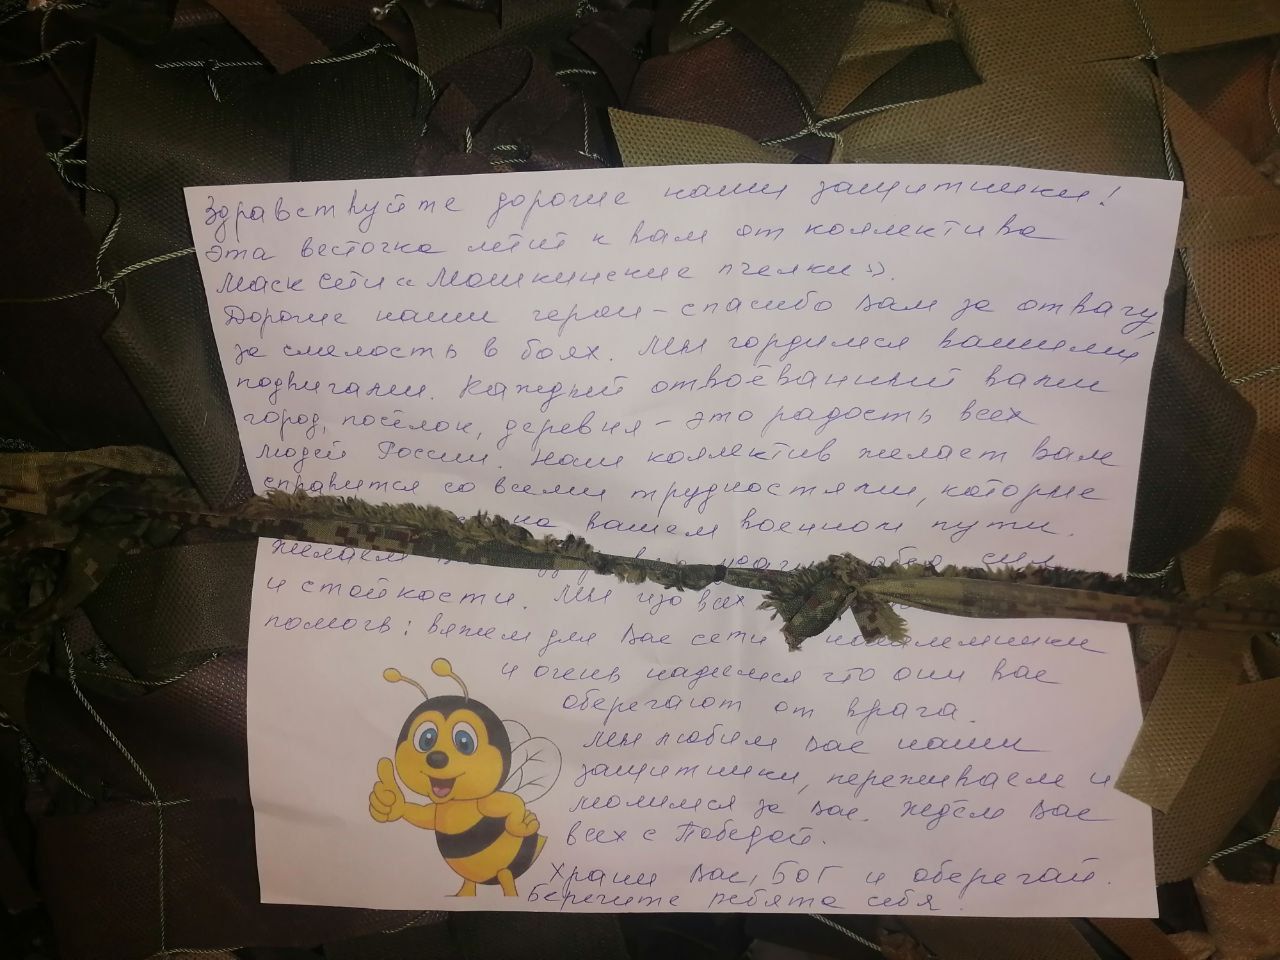 Здравствуйте дорогие наши защитники!
Эта весточка летит к вам от коллектива
Масксети "Мошкинские пчелки".
Дорогие наши герои - спасибо вам за отвагу,
за смелость в боях. Мы гордимся вашими
подвигами. Каждый отвоёванный вами
город, посёлок, деревня - это радость всех
людей России. Наш коллектив желает вам
справится со всеми трудностями, которые
на вашем военном пути.
желаем сил
и стойкости. Мы изо всех
помогв: вяжем для вас сети
и очень надеемся что они вас
оберегают от врага.
Мы любим вас наши
защитники, переживаем и
молимся за вас. Ждём вас
всех с Победой.
Храни вас, БОГ и оберегай.
Берегите ребята себя.